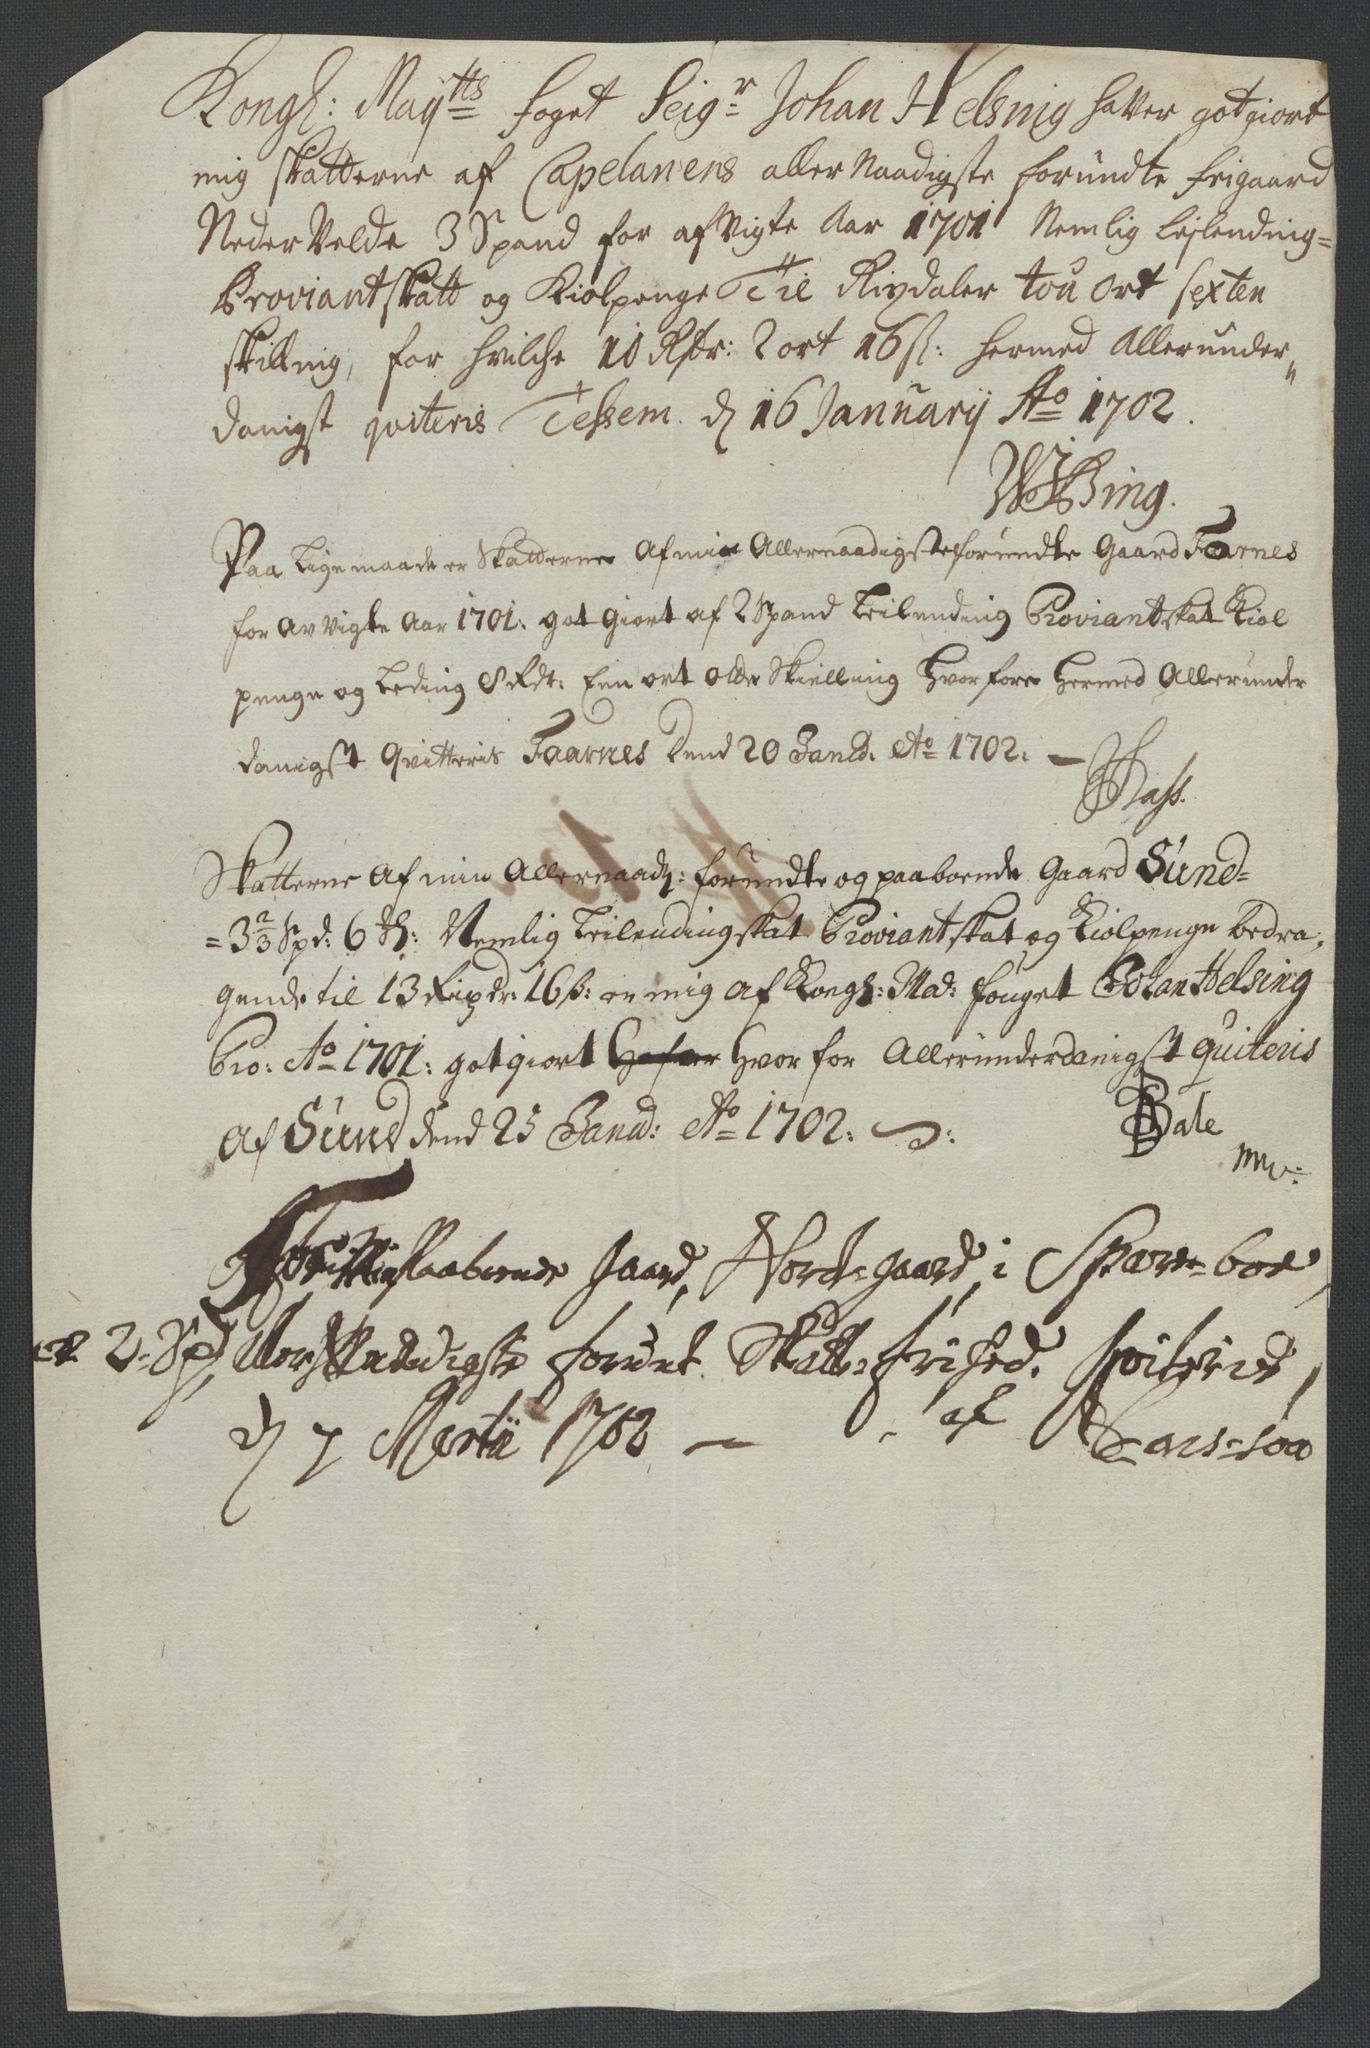 Kongl: May^tts foget Seig^r Johan Helsing haVer got giort
mig skatterne af Capelanens aller Naadigste forundte frigaard
NederVelde 3 Spand for afVigte Aar 1701 Nemlig Leylending=
Proviantskatt og Kiolpenge Tie Rixdaler tou ort sexten
skilling, for hvilche 10 Rdr: 2 ort 16 s: hermed Allerunder,,
danigst qviteris Tessem. d 16 Januarij Ao 1702.
Bing.
Paa Lige maade er Skatterne Af min Allernaadigste forundte Gaard Faarnes
for avVigte Aar 1701. got giort af 2 Spand Leilending Proviantskat Kiol
penge og Leding 8 Rdr: Een ort otte Skielling Hvorfore Hermed Allerunder
danigst Qvitteris Faarnes Dend 20 Janu: Ao 1702: —
Hass.
Skatterne Af min Allernaad: forundte og paaboende Gaard Sund=
=3 2/3 Spd: 6 Nemlig Leilendingskat Proviantskat og Kiolpenge bedra,
gende til 13 Rixdr: 16 s: er mig af Kongl: Ma: fouget Johan Helsing
Pro: Ao 1701: got giort Hvor for Allerunderdanigst quiteris
Af Sund dend 25 Janu: Ao 1702:
Bale
mp:
For min Paaboende gaard, Nord=gaard, i Sparboe,
2=Spd, Aller Naadigste forunt Skatt=frihed. Qviteris,
d 7 Martii 1702 — af